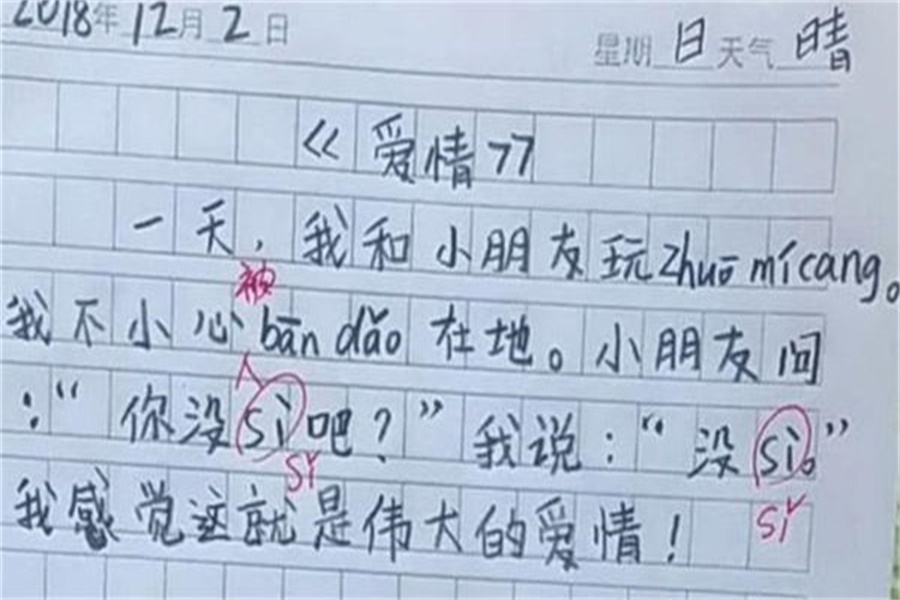 2018年12月2日 星期日 天气晴
《爱情》
一天，我和小朋友玩zhuō mícang。
被
我不小心bān dǎo在地。小朋友问
："你没sì吧？"我说："没sì。"
sǐ
sǐ
我感觉这就是伟大的爱情！